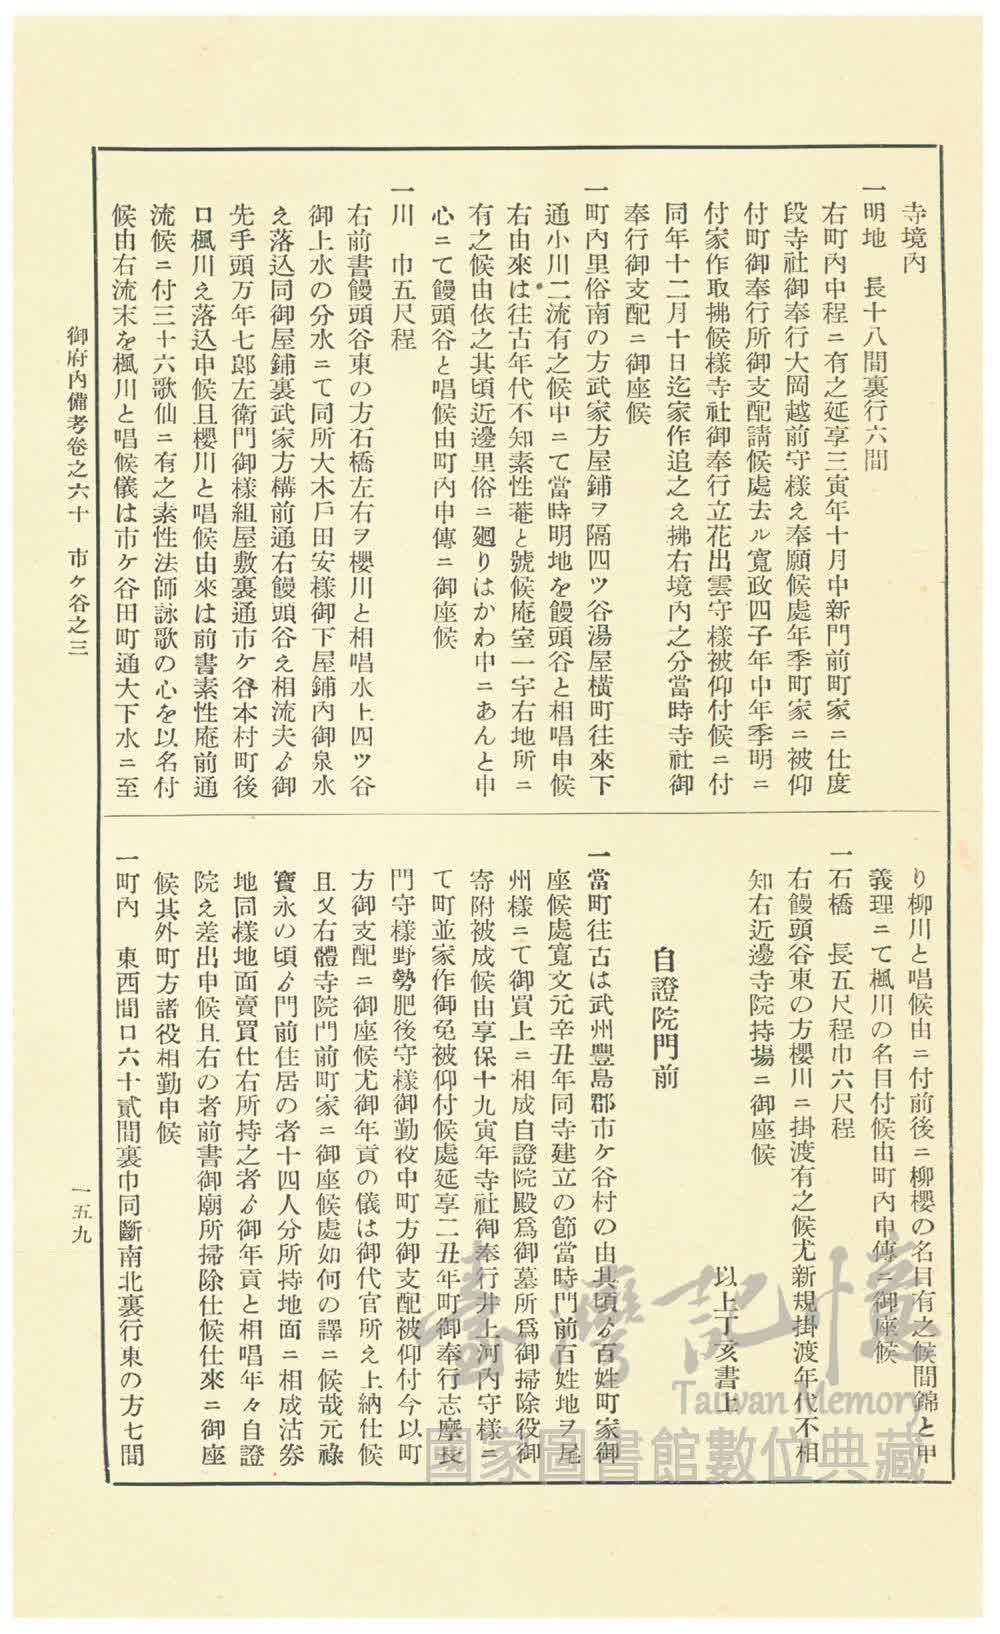 寺境内
一明地　長十八間裏行六間
右町内中程ニ有之延享三寅年十月中新門前町家ニ仕度
段寺社御奉行大岡越前守樣え奉願候處年季町家ニ被仰
付町御奉行所御支配請候處去ル寬政四子年中年季明ニ
付家作取拂候樣寺社御奉行立花出雲守樣被仰付候ニ付
同年十二月十日迄家作追之え拂右境内之分當時寺社御
奉行御支配ニ御座候
一町内里俗南の方武家方屋鋪ヲ隔四ツ谷湯屋橫町往來下
通小川二流有之候中ニて當時明地を饅頭谷と相唱申候
右由來は往古年代不知素性菴と號候庵室一宇右地所ニ
有之候由依之其頃近邊里俗ニ廻りはかわ中ニあんと申
心ニて饅頭谷と唱候由町内申傳ニ御座候
一川　巾五尺程
右前書饅頭谷東の方石橋左右ヲ櫻川と相唱水上四ツ谷
御上水の分水ニて同所大木戶田安樣御下屋鋪内御泉水
え落込同御屋鋪裏武家方構前通右饅頭谷え相流夫ゟ御
先手頭万年七郎左衛門御樣組屋敷裏通市ケ谷本村町後
口楓川え落込申候且櫻川と唱候由來は前書素性庵前通
流候ニ付三十六歌仙ニ有之素性法師詠歌の心を以名付
候由右流末を楓川と唱候儀は市ケ谷田町通大下水ニ至
り柳川と唱候由ニ付前後ニ柳櫻の名目有之候間錦と申
義理ニて楓川の名目付候由町内申傳ニ御座候
一石橋　長五尺程巾六尺程
右饅頭谷東の方櫻川ニ掛渡有之候尤新規掛渡年代不相
知右近邊寺院持場ニ御座候
以上丁亥書上
自證院門前
一當町往古は武州豐島郡市ケ谷村の由其頃ゟ百姓町家御
座候處寬文元辛丑年同寺建立の節當時門前百姓地ヲ尾
州樣ニて御買上ニ相成自證院殿爲御墓所爲御掃除役御
寄附被成候由享保十九寅年寺社御奉行井上河内守樣ニ
て町並家作御免被仰付候處延享二丑年町御奉行志摩長
門守樣野勢肥後守樣御勤役中町方御支配被仰付今以町
方御支配ニ御座候尤御年貢の儀は御代官所え上納仕候
且又右體寺院門前町家ニ御座候處如何の譯ニ候哉元祿
寶永の頃ゟ門前住居の者十四人分所持地面ニ相成沽券
地同樣地面賣買仕右所持之者ゟ御年貢と相唱年々自證
院え差出申候且右の者前書御廟所掃除仕候仕來ニ御座
候其外町方諸役相勤申候
一町内　東西間口六十貳間裏巾同斷南北裏行東の方七間
御府内備考卷之六十　市ケ谷之三
一五九
臺灣記憶
Taiwan Memory
國家圖書館數位典藏